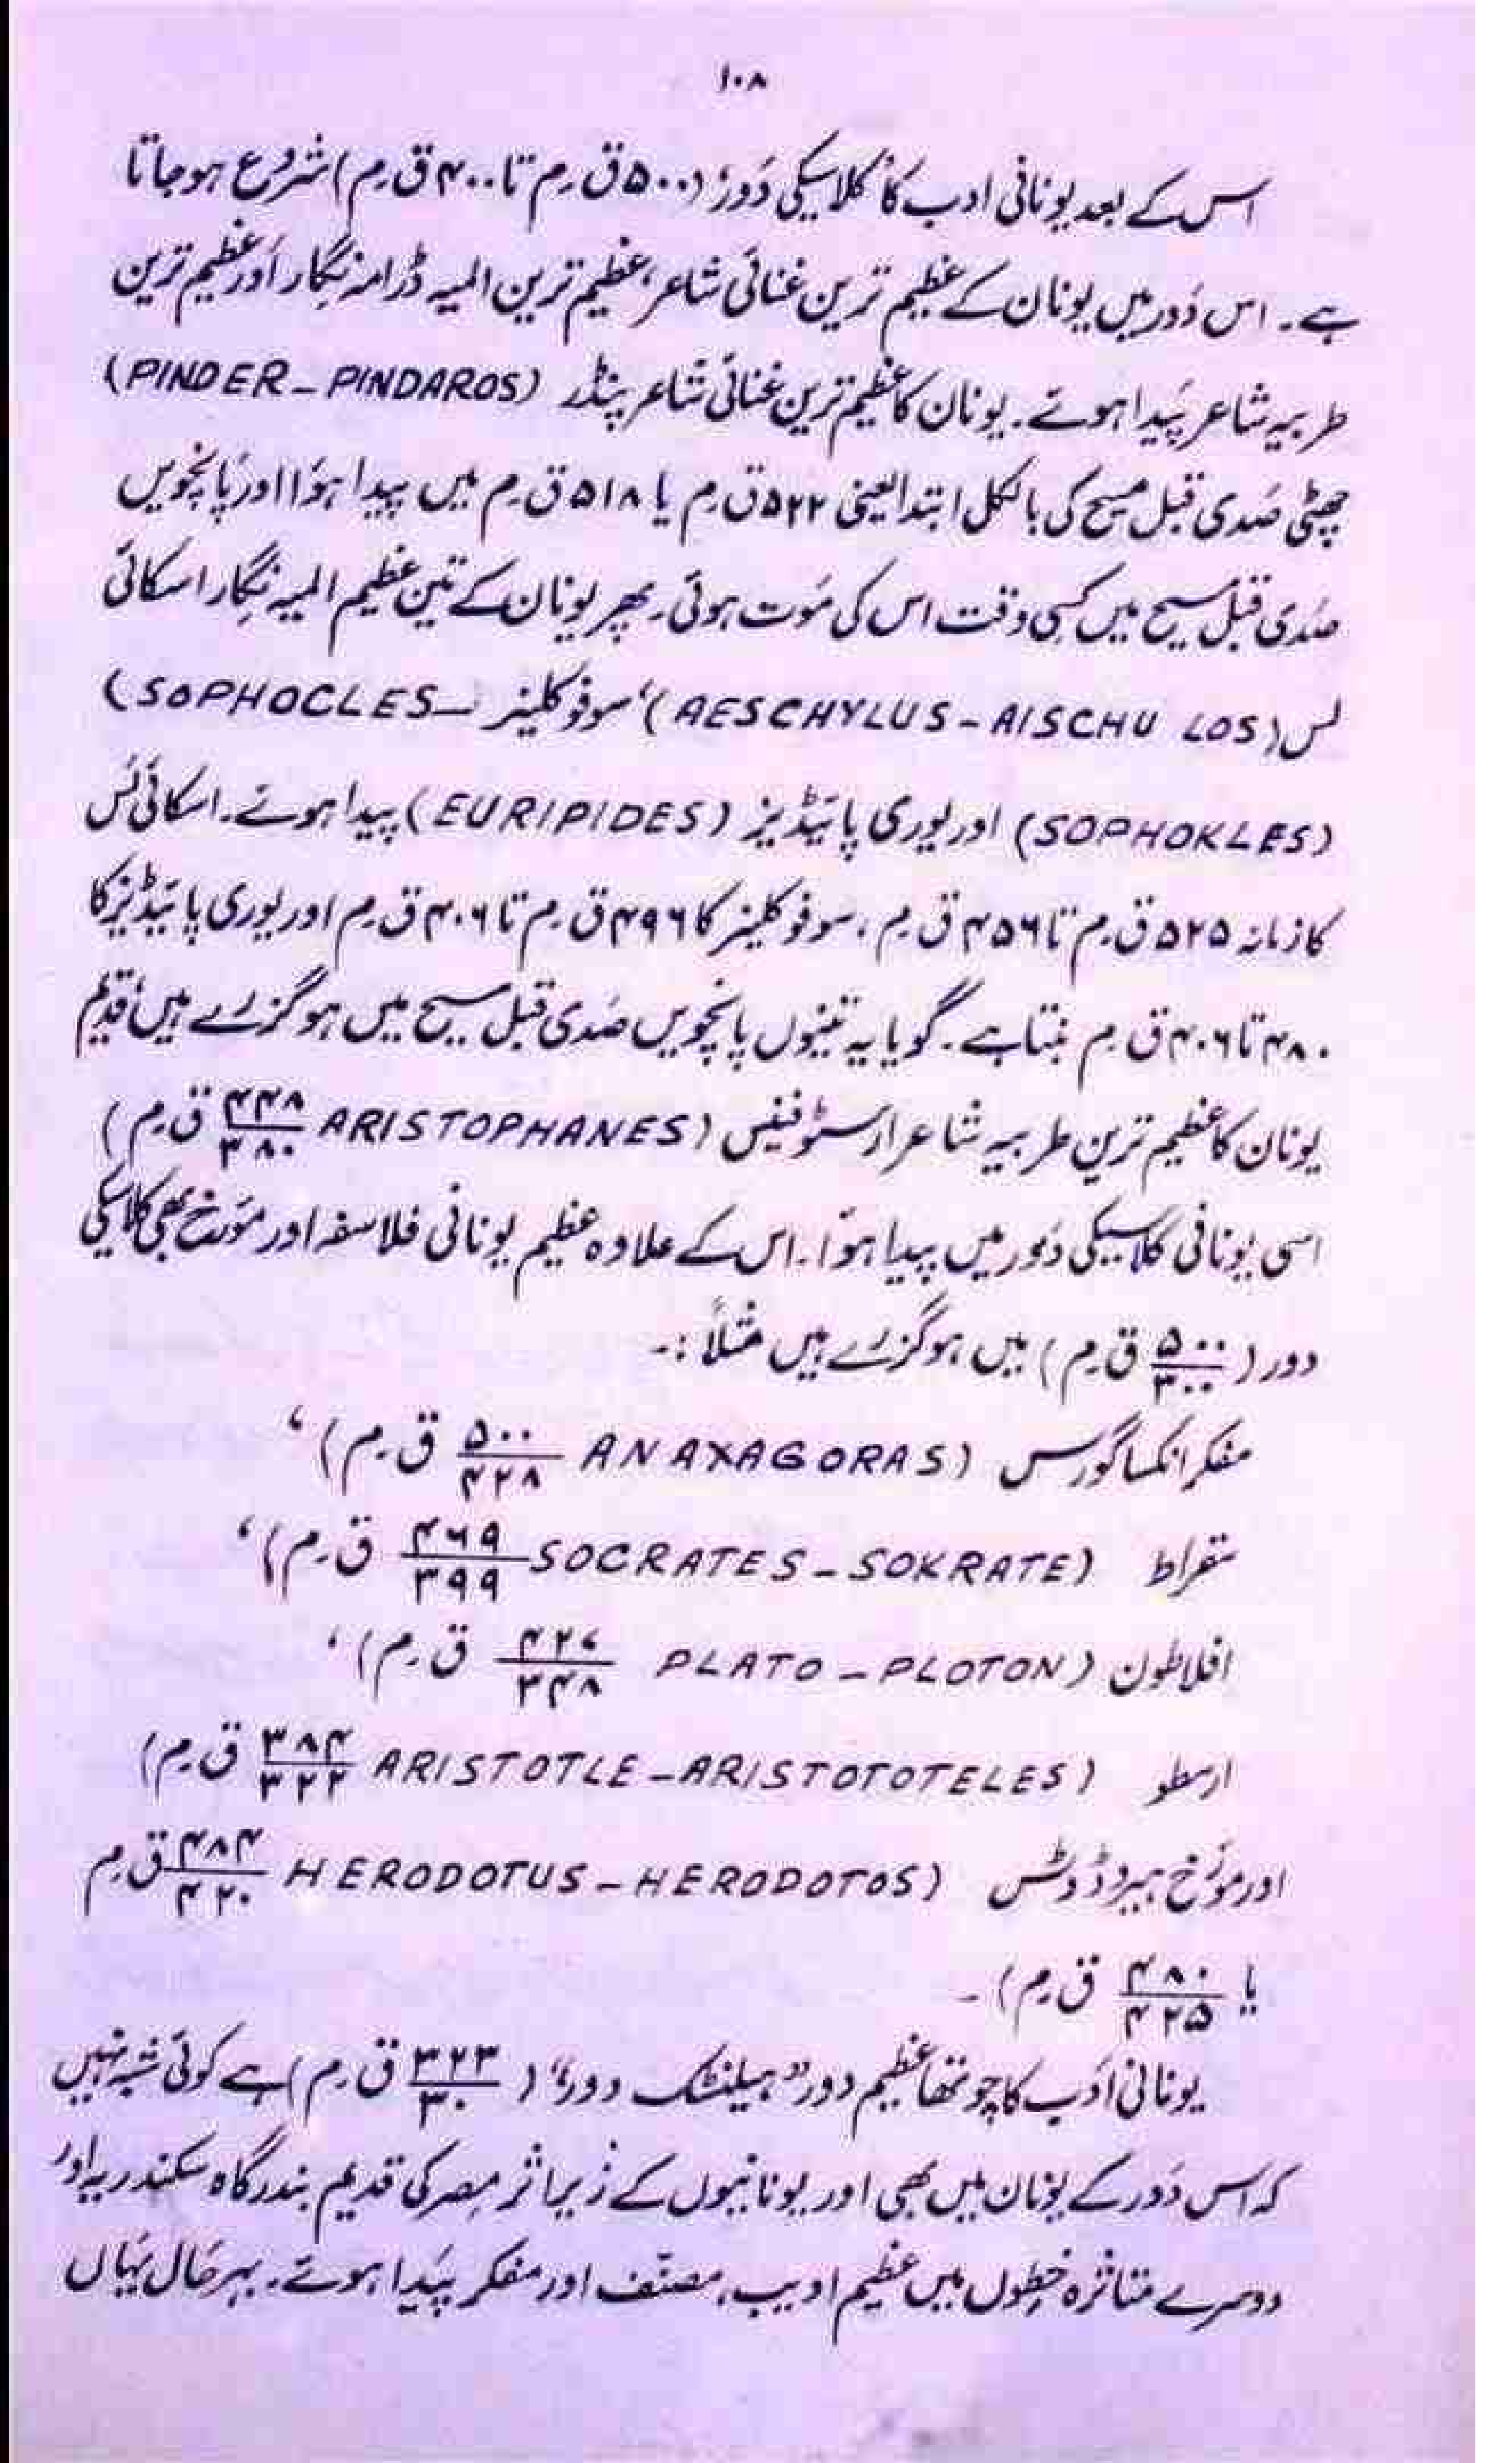 ۱۰۸
اس کے بعد یونانی ادب کا "کلاسیکی دَور" (۵۰۰ ق۔م تا ۴۰۰ ق۔م) شروع ہو جاتا
ہے۔ اس دَور میں یونان کے عظیم ترین غنائی شاعر، عظیم ترین المیہ ڈرامہ نگار اور عظیم ترین
طربیہ شاعر پَیدا ہوئے۔ یونان کا عظیم ترین غنائی شاعر پنڈر (PINDER – PINDAROS)
چھٹی صَدی قبل مسیح کی بالکل ابتدا یعنی ۵۲۲ ق۔م یا ۵۱۸ ق۔م میں پیدا ہوَا اور پانچویں
صَدی قبل مسیح میں کسی وقت اس کی مَوت ہوئی۔ پھر یونان کے تین عظیم المیہ نگار اسکائی
لس (AESCHYLUS – AISCHU LOS)، سوفوکلیز (SOPHOCLES –
SOPHOKLES) اور یوری پائیڈیز (EURIPIDES) پیدا ہوئے۔ اسکائی لَس
کا زمانہ ۵۲۵ ق۔م تا ۴۵۶ ق۔م، سوفوکلیز کا ۴۹۶ ق۔م تا ۴۰۶ ق۔م اور یوری پائیڈیز کا
۴۸۰ تا ۴۰۶ ق۔م بنتا ہے۔ گویا یہ تینوں پانچویں صَدی قبل مسیح میں ہو گزرے ہیں، قدیم
یونان کا عظیم ترین طربیہ شاعر ارسٹوفینس (ARISTOPHANES ۴۴۸/۳۸۰ ق۔م)
اسی یونانی کلاسیکی دَور میں پیدا ہوَا۔ اس کے علاوہ عظیم یونانی فلاسفہ اور مؤرخ بھی کلاسیکی
دور (۵۰۰/۳۰۰ ق۔م) میں ہو گزرے ہیں مثلاً :۔
مفکر انکساگورس (ANAXAGORAS ۵۰۰/۴۲۸ ق۔م)،
سقراط (SOCRATES – SOKRATE ۴۶۹/۳۹۹ ق۔م)،
افلاطون (PLATO – PLOTON ۴۲۷/۳۴۸ ق۔م)،
ارسطو (ARISTOTLE – ARISTOTOTELES ۳۸۴/۳۲۲ ق۔م)
اور مؤرخ ہیروڈوٹس (HERODOTUS – HERODOTOS ۴۸۴/۴۲۰ ق۔م
یا ۴۸۰/۴۲۵ ق۔م)۔
یونانی ادَب کا چوتھا عظیم دور "ہیلنٹک دور" (۳۲۳/۳۰ ق۔م) ہے کوئی شبہ نہیں
کہ اس دَور کے یونان میں بھی اور یونانیوں کے زیراثر مصر کی قدیم بندرگاہ سکندریہ اور
دوسرے متاثرہ خطوں میں عظیم ادیب، مصنّف اور مفکر پَیدا ہوئے۔ بہرحَال یہاں